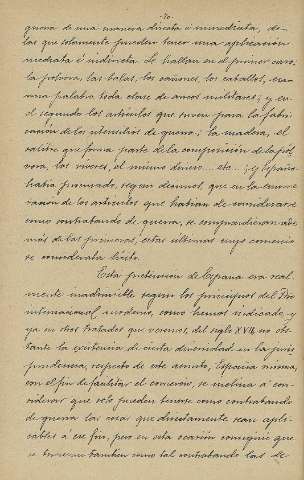 guerra de una manera directa é inmediata, de
las que solamente pueden tener una aplicación
mediata é indirecta. Se hallan en el primer caso:
la pólvora, las balas, los cañones, los caballos, en u-
na palabra toda clase de armas militares; y en
el segundo los artículos que sirven para la fabri-
cación de los utensilios de guerra; la madera, el
salitre que forma parte de la composición de la pól-
vora, los víveres, el mismo dinero... etc...; y España
había procurado, según decimos, que en la enume-
ración de los artículos que habían de considerarse
como contrabando de guerra, se comprendieran ade-
más de las primeras, estas últimas cuyo comercio
se consideraba lícito.
Esta pretensión de España era real-
mente inadmisible según los principios del Dro
internacional moderno, como hemos indicado y
ya en otros tratados que veremos, del siglo XVII, no obs-
tante la existencia de cierta diversidad en la juris-
prudencia, respecto de este asunto, España misma,
con el fin de facilitar el comercio, se inclina á con-
siderar que solo pueden tenerse como contrabando
de guerra las cosas que directamente sean apli-
cables á ese fin, pero en esta ocasión consiguió que
se tuvieran también como tal contrabando las de-